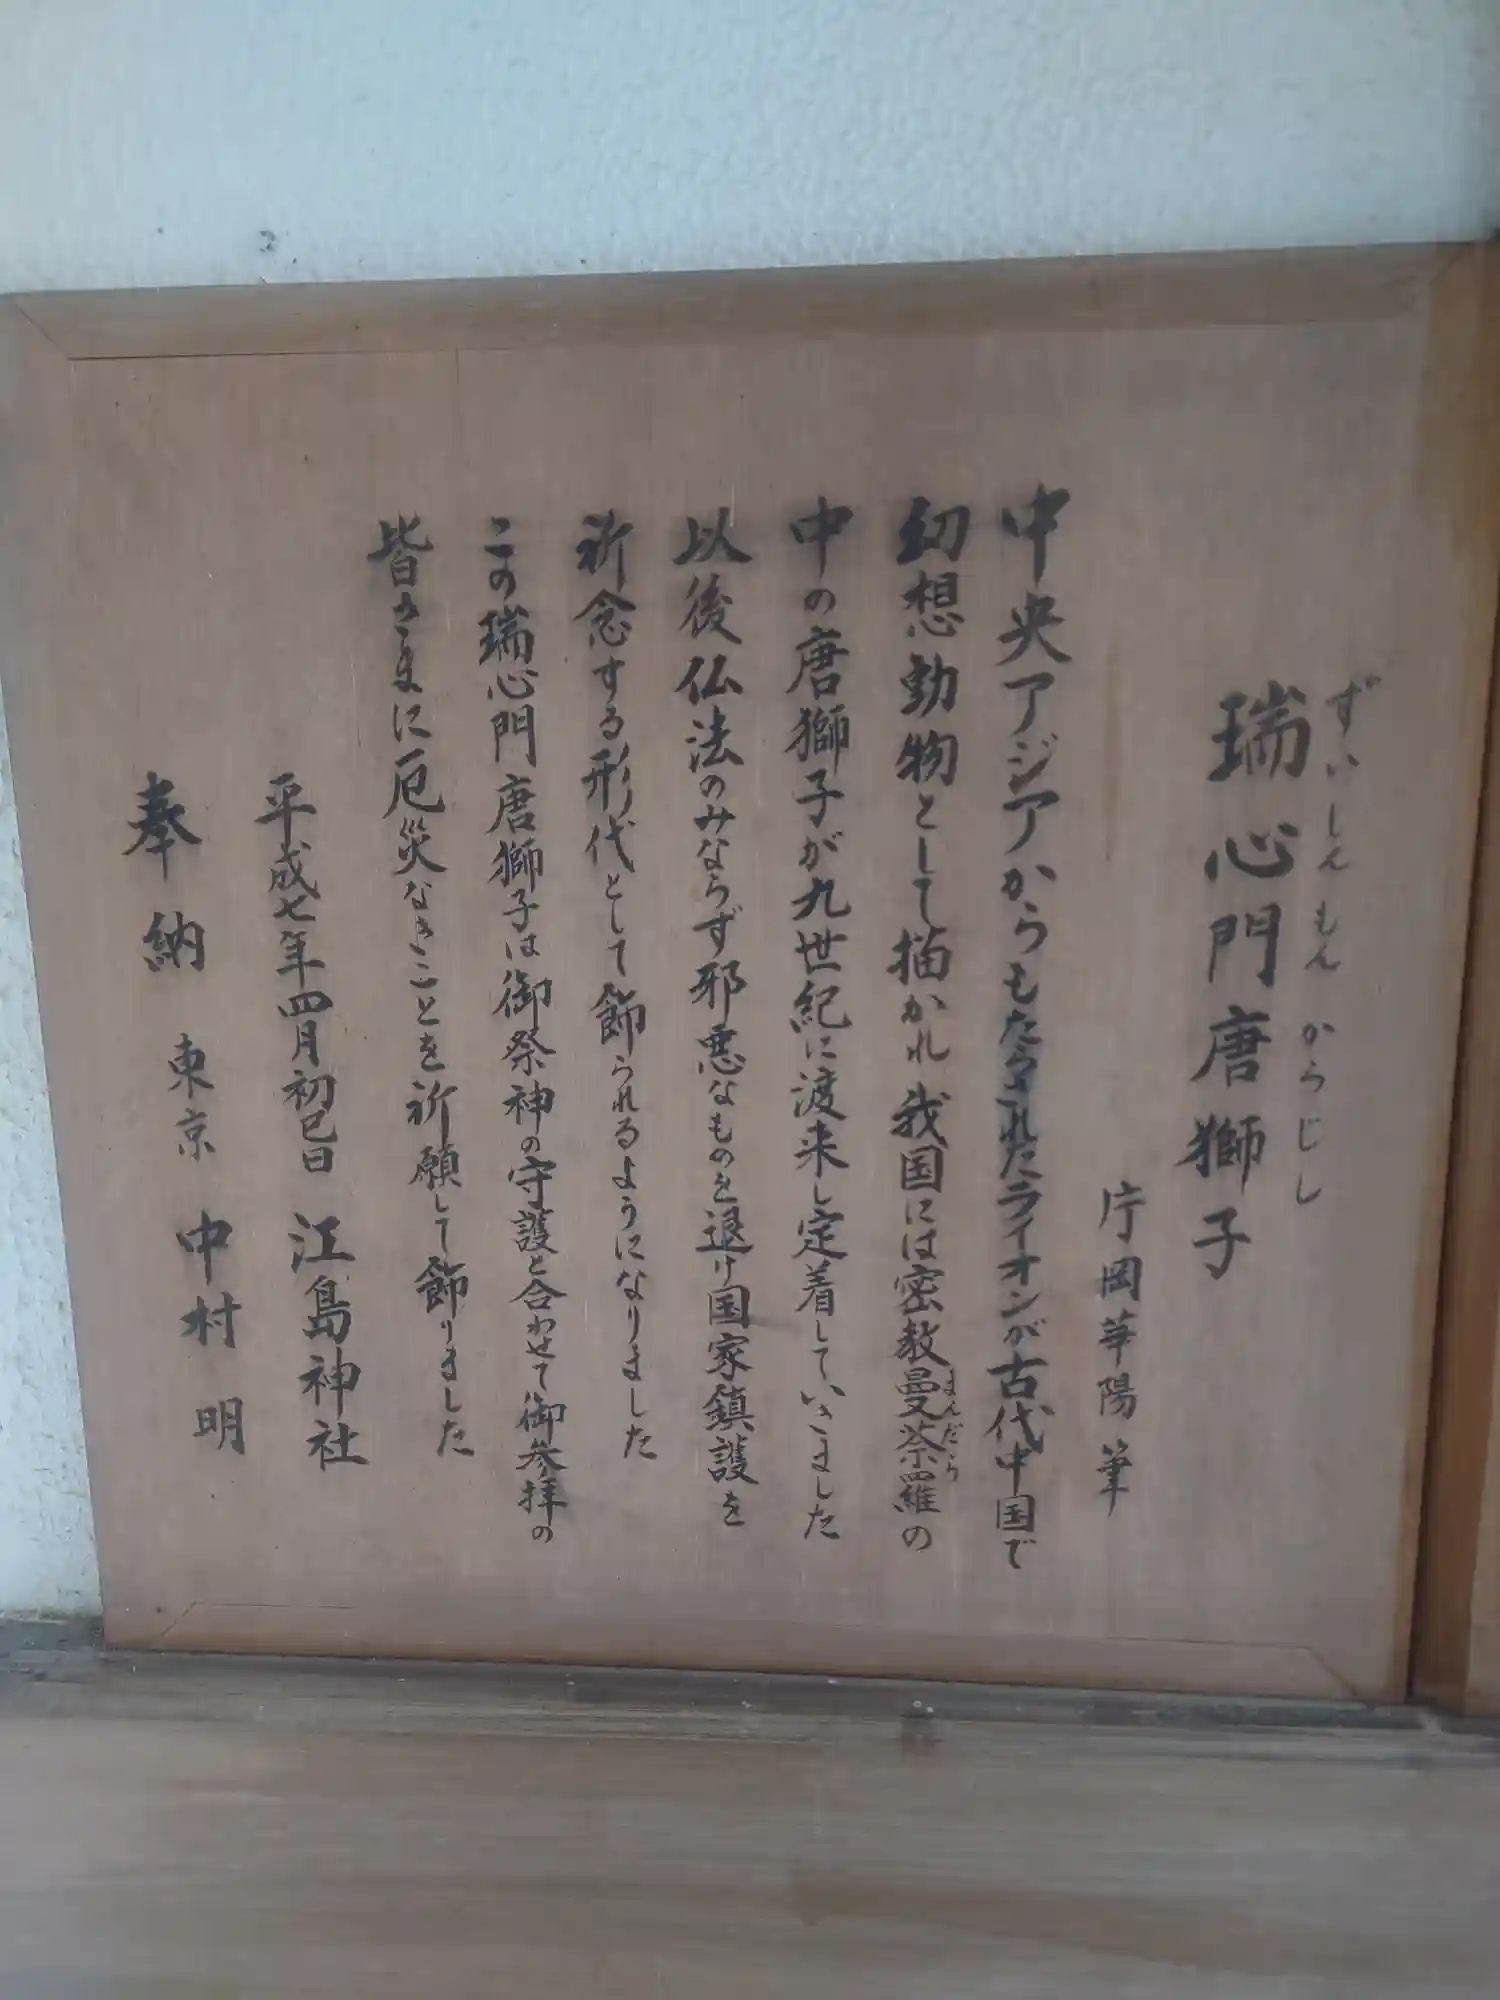 ずいしんもん からじし
瑞心門唐獅子
片岡華陽 筆
中央アジアからもたらされたライオンが古代中国で
幻想動物として描かれ我国には密教曼荼羅の
まんだら
中の唐獅子が九世紀に渡来し定着していきました
以後仏法のみならず邪悪なものを退け国家鎮護を
祈念する形代として飾られるようになりました
この瑞心門唐獅子は御祭神の守護と合わせて御参拝の
皆さまに厄災なきことを祈願して飾りました
平成七年四月初巳日 江島神社
奉納 東京 中村 明